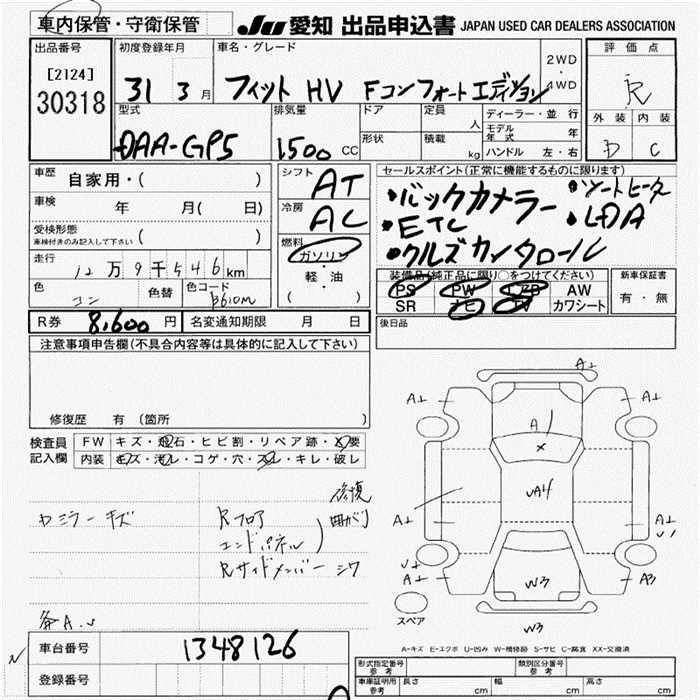 車内保管・守衛保管
JU 愛知 出品申込書 JAPAN USED CAR DEALERS ASSOCIATION
出品番号
[2124]
30318
初度登録年月
31 3 月
車名・グレード
フィット HV Fコンフォートエディション
2WD
・
4WD
評価点
R
外装 内装
D C
型式
DAA-GP5
排気量
1500 CC
ドア
形状
定員
人
積載
kg
ディーラー・並行
モデル年式 年
ハンドル 左・右
車歴
自家用・( )
車検
年 月( 日)
受検形態
車検付きのみ記入して下さい
( )
走行
12万9千546km
色
コン
色替
色コード
B610M
シフト
AT
冷房
AC
燃料
ガソリン
・
軽・油
( )
セールスポイント(正常に機能するものに限ります)
・バックカメラー ・シートヒーター
・ETC ・LDA
・クルズカンタロール
装備品(純正品に限り○をつけてください)
PS PW エアB AW
SR ナビ TV カワシート
新車保証書
有・無
R券 8,600 円
名変通知期限 月 日
後日品
注意事項申告欄(不具合内容等は具体的に記入して下さい)
修復歴 有 (箇所 )
検査員
記入欄
FW キズ・飛石・ヒビ割・リペア跡・X要
内装 キズ・汚レ・コゲ・穴・スレ・キレ・破レ
修復
カミラーキズ
Rフロア
曲がり
エンドパネル
Rサイドメンバー シワ
A
X
UA4
W3
W3
A3
スペア
A-キズ E-エクボ U-凹み W-補修跡 S-サビ C-腐食 XX-交換済
車台番号
1348126
登録番号
型式指定番号
参考
類別区分番号
参考
車庫証明用
参考
長さ cm
幅 cm
高さ cm